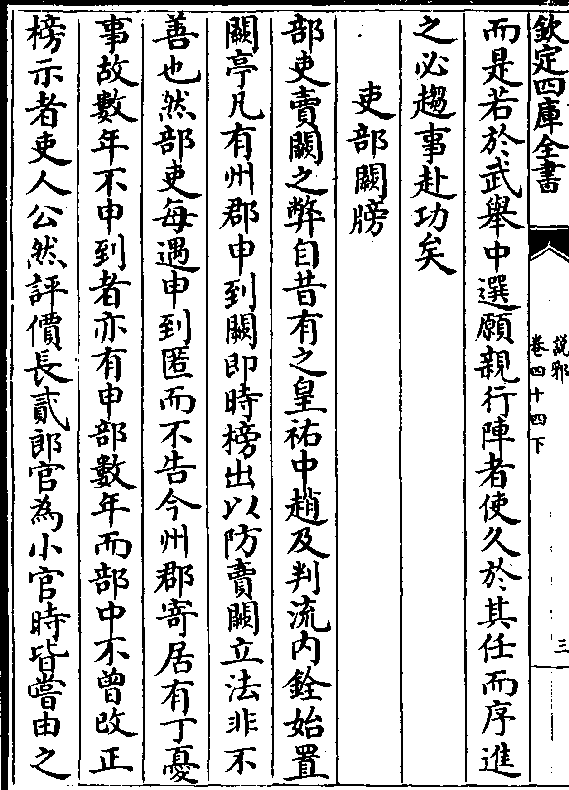 欽定四庫全書
說郛
卷四十四下
三
而是若於武舉中選願親行陣者使久於其任而序進
之必趨事赴功矣
吏部闕牓
部吏賣闕之弊自昔有之皇祐中趙及判流内銓始置
闕亭凡有州郡申到闕即時榜出以防賣闕立法非不
善也然部吏每遇申到匿而不告今州郡寄居有丁憂
事故數年不申到者亦有申部數年而部中不曾改正
榜示者吏人公然評價長貳郎官為小官時皆嘗由之